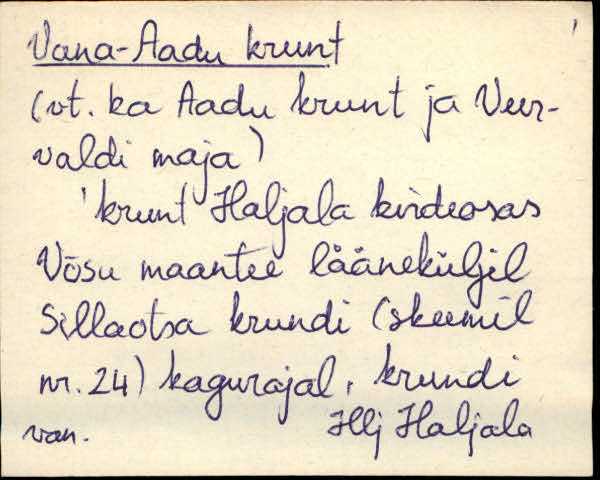 Vana-Aadu krunt
(vt. ka Aadu krunt ja Veer-
valdi maja)
'krunt Haljala kirdeosas
Võsu maantee lääneküljel
Sillaotsa krundi (skeemil
nr. 24) kagurajal, krundi
van. Hlj Haljala